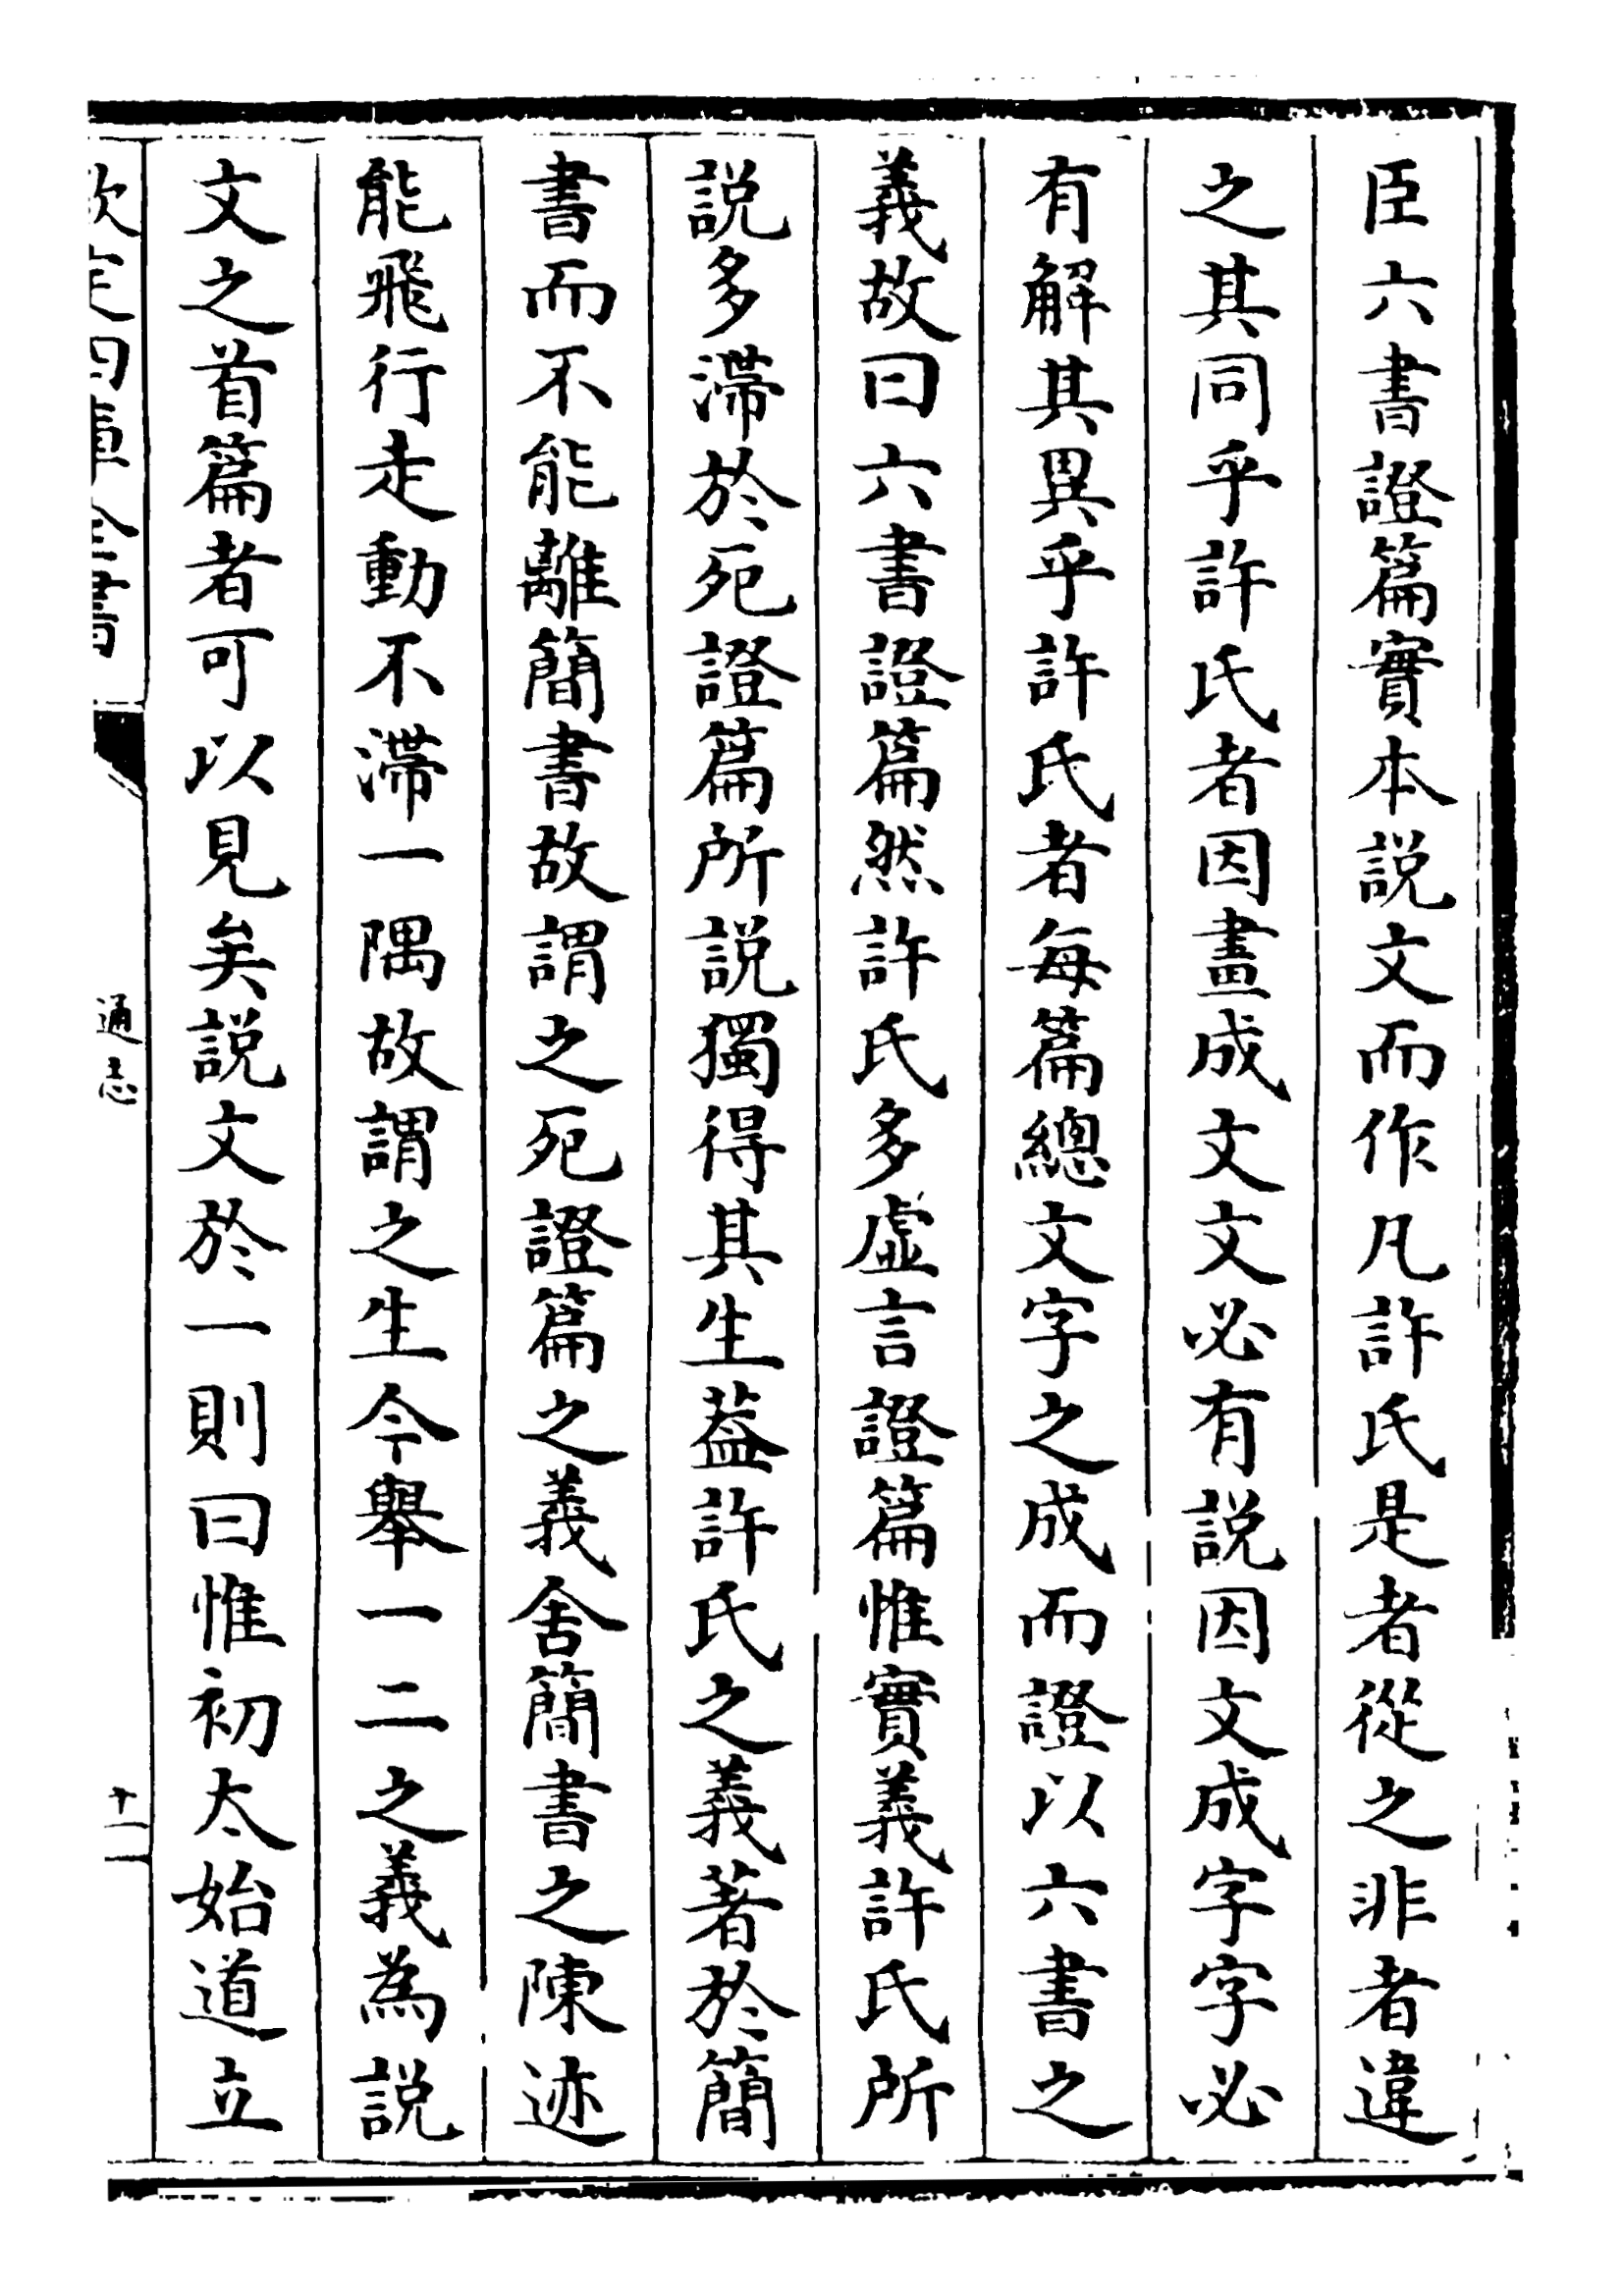 臣六書證篇實本説文而作凡許氏是者從之非者違
之其同乎許氏者因畫成文文必有説因文成字字必
有解其異乎許氏者每篇總文字之成而證以六書之
義故曰六書證篇然許氏多虚言證篇惟實義許氏所
説多滯於死證篇所説獨得其生葢許氏之義著於簡
書而不能離簡書故謂之死證篇之義舍簡書之陳迹
能飛行走動不滯一隅故謂之生今舉一二之義為説
文之首篇者可以見矣説文於一則曰惟初太始道立
欽定四庫全書
通志
十一